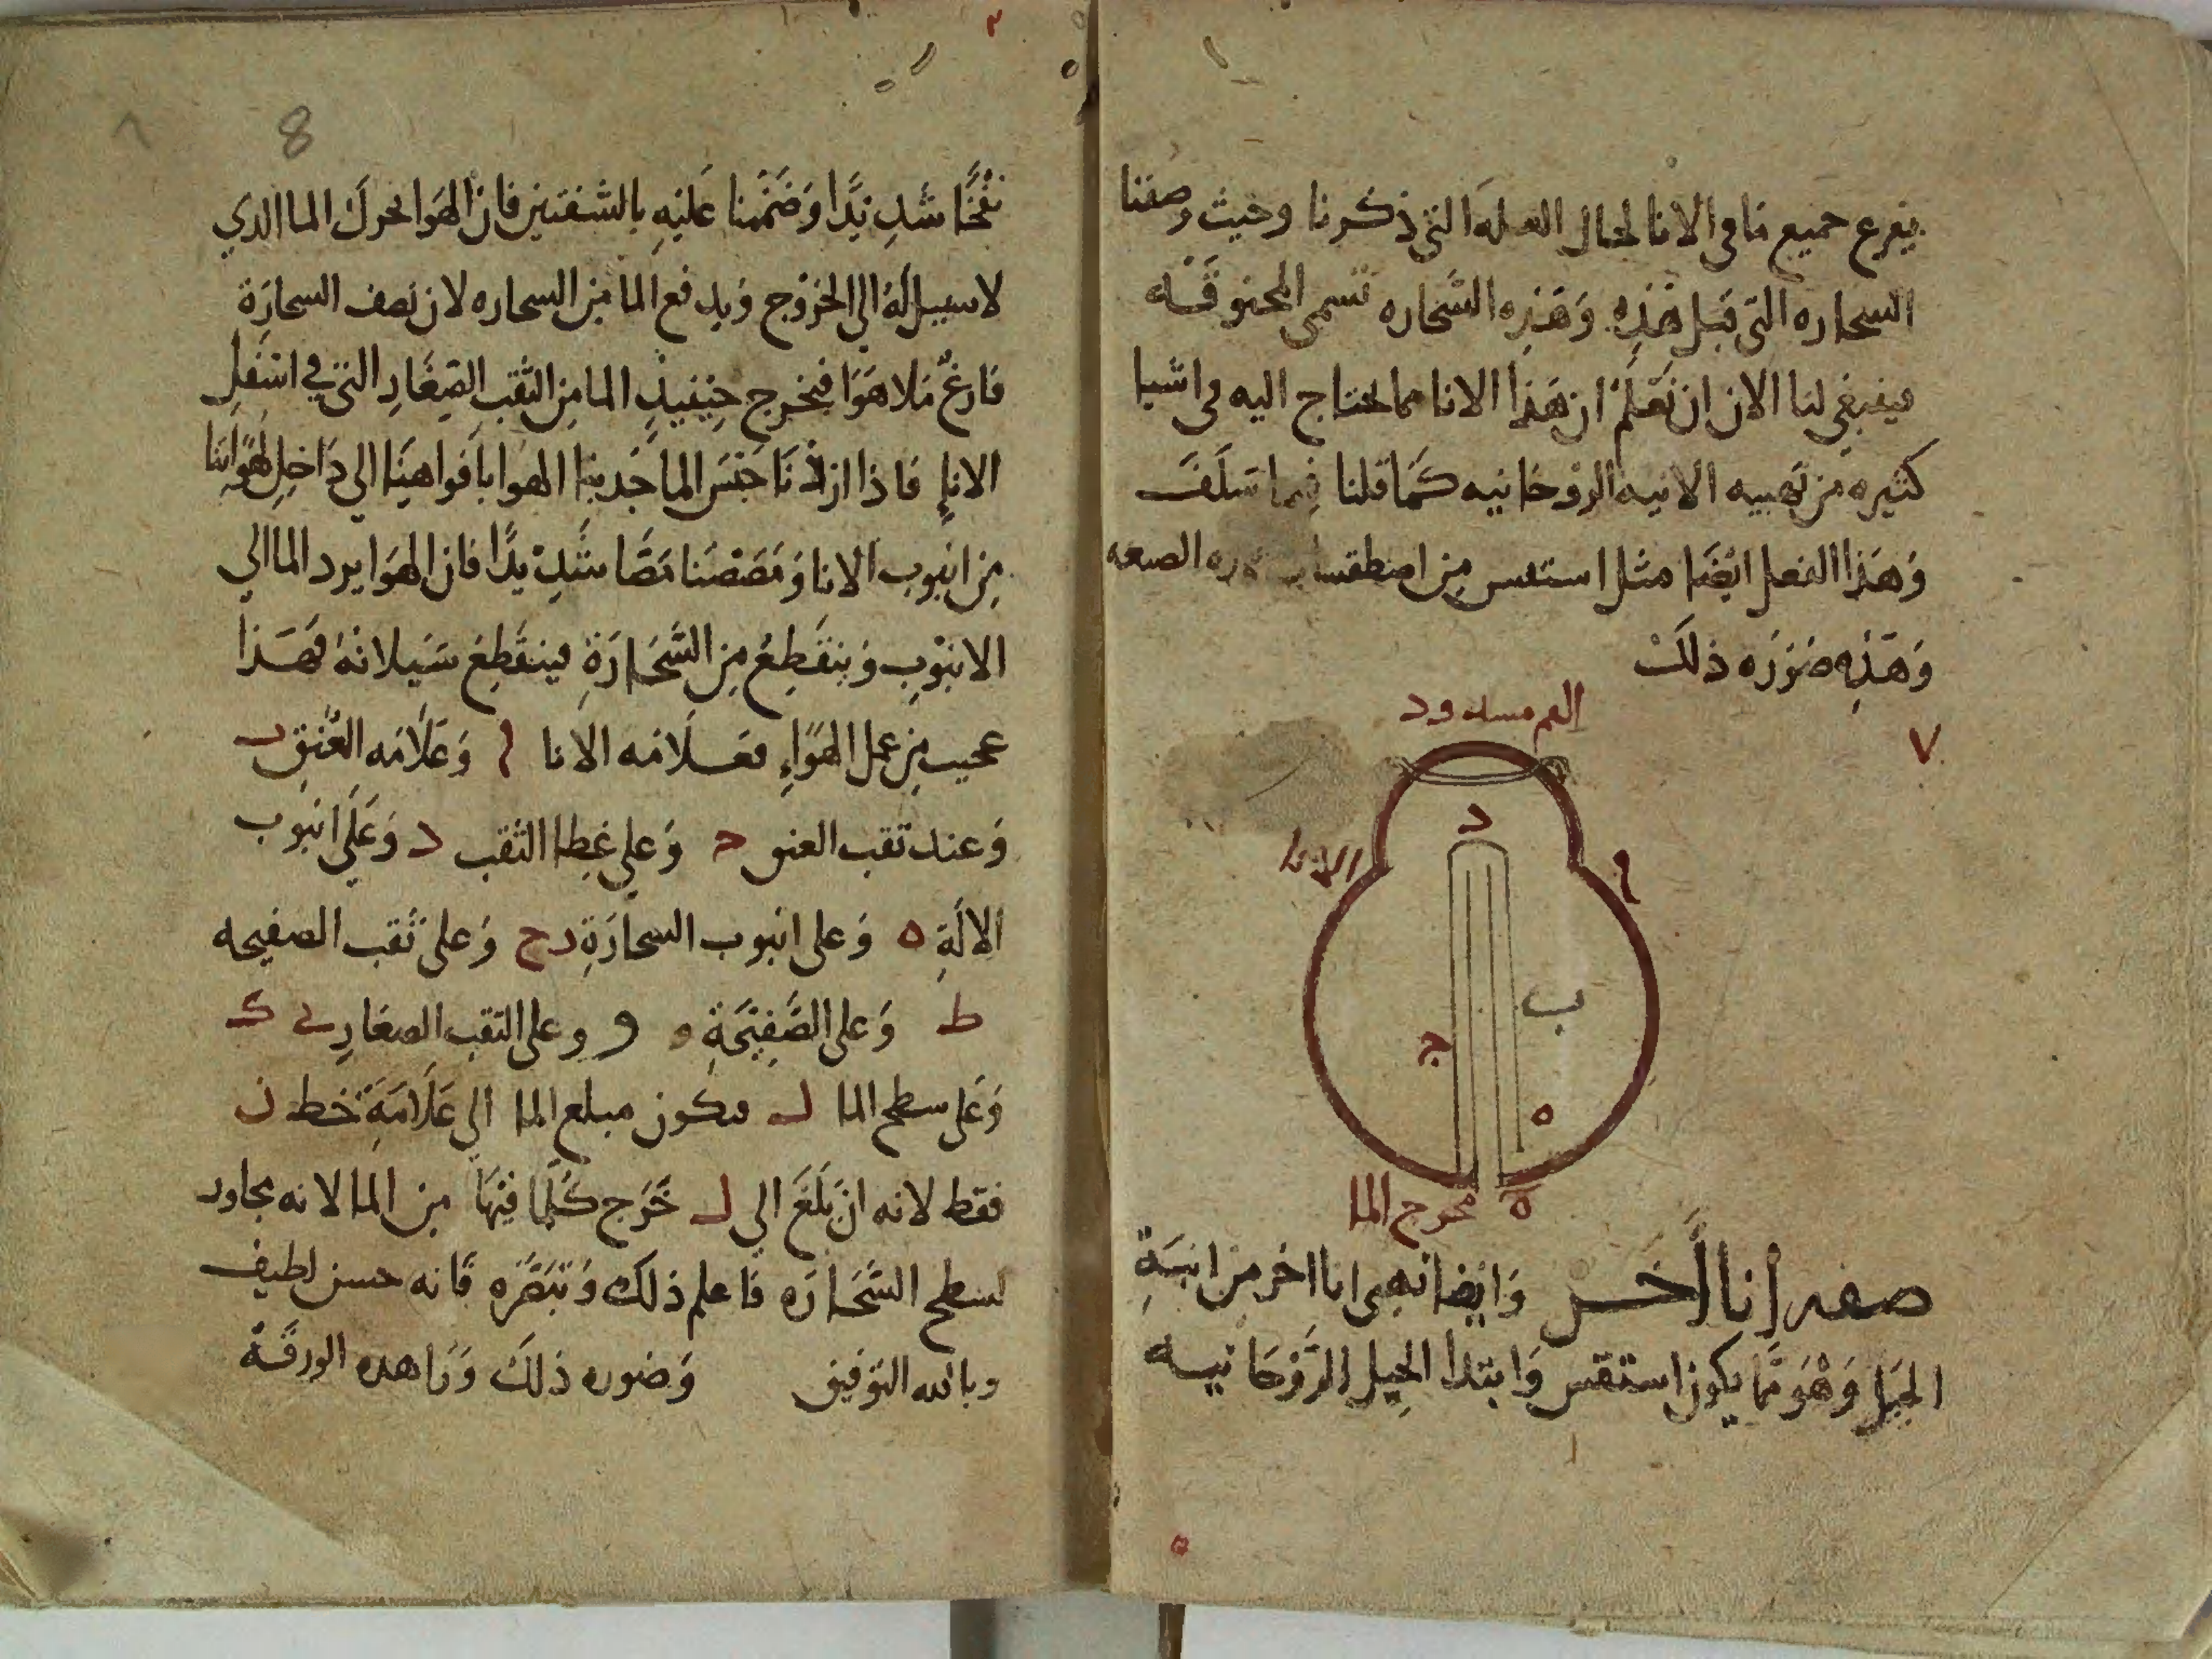 يفرع جميع ما في الانا لحال العله التي ذكرنا وحيث وصفنا
السحاره التي قبل هذه وَهَذِه السَّحاره تسمى المخنوقَه
فينبغي لنا الان ان نَعْلَمْ ان هَذا الانا مما يحتاج اليه في اشيا
كثيره من تهييه الانيه الروحانيه كَمَا قلنا فِيما سَلَفَ
وَهَذا الفعل ايضًا مثل استقس مِن اصطقسات الصنعه
وَهَذِه صُورَه ذلكَ
٧
الفم مسدود
د
الانا
ا
ب
ج
ه
ه
مخرج الما
صفه أنا أخَر وَايضا نهيى انا اخر من انيَةِ
الحِيَل وَهُوَ مَّا يكون استقس وَابتدا الحِيل الرَّوْحَانيه
8
نفْخًا شَدِيدًا وَضَمَمْنا عَليهِ بالشفتين فان الهَوا يحرك الما الذي
لا سبيل لَهُ الي الخرُوج وَيدفع الما مِن السحاره لان نصف السحارَة
فارغٌ مَلا هَوَا فيخرج حِينَيذٍ الما مِن الثقب الصِغَارِ التي في اسْفَلِ
الانإ فاذا ارَدْنَا حَبْسَ الما جَدبنا الهوا بافواهِنَا الي دَاخِل لهوَاتِنا
مِن انبوب الانا وَمَصَصْنا مَصًّا شَدِيْدًا فان الهَوا يرد الما الي
الانبُوبِ وَينقَطِعُ مِن السَّحَارَةِ فينقَطِعُ سَيلانهُ فَهَذا
عجيب مِن عمل الهَوَاءِ فعَلامَه الانا ا وَعَلَامَه العُنقِ ب
وَعند ثقب العنق ج وَعلي غِطا الثقب د وَعَلَي انبوب
الالَةِ ه وَعلى انبوب السحارَةِ رح وَعلى ثقب الصفيحه
ط وَعلى الصَّفِيحَةِ و و وعلى الثقب الصغارِ ي ك
وَعَلى سطح الما ل فيكون مبلغ الما الي عَلَامَةِ خط ن
فقط لانه ان بَلَغَ الي ل خَرَج كُلما فيهَا مِن الما لانه يجاوز
لسطح السَّحَارَه فاعلم ذلك وَتبَصَّرْه فانه حسن لطيف
وبالله التوفيق وَصُوره ذلكَ وَرا هذه الورقَهْ